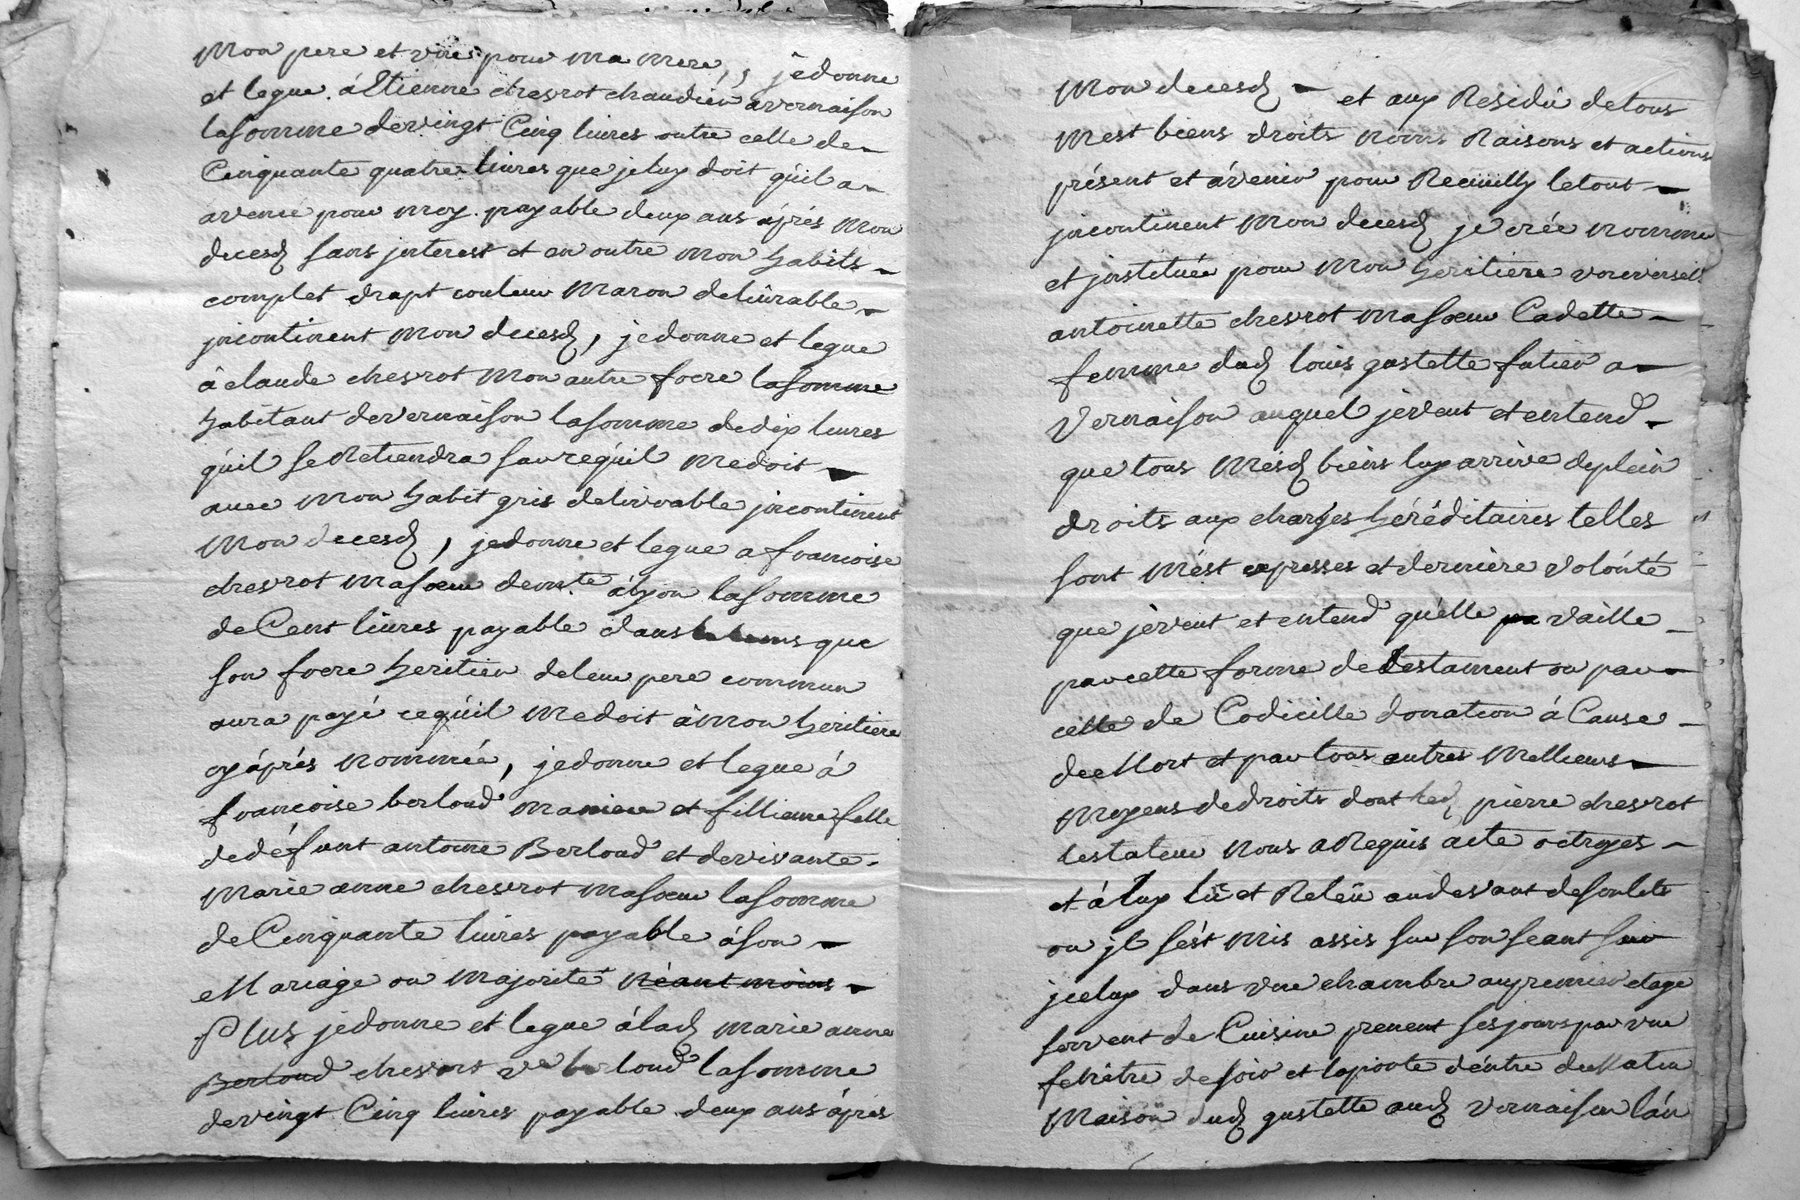 Mon pere et une pour ma mere,, je donne
et legue á Etienne chevrot chaudier a vernaison
la somme de vingt Cinq livres outre celle de
Cinquante quatre livres que je luy doit qúil a
avencé pour moy payable deux ans áprés mon
decesd sans jnterest et en outre mon habits
complet drapt couleur maron delivrable
jncontinent mon decesd, je donne et legue
á claude chevrot mon autre frere la somme
habitant de vernaison la somme de dix livres
qúil se Retiendra sur ce qúil me doit
avec mon habit gris delivrable jncontinent
mon decesd, je donne et legue a francoise
chevrot ma sœur demte. á lyon la somme
de Cent livres payable dans le tems que
son frere heritier de leur pere commun
aura payé ce qúil me doit á mon heritiere
cy áprés nommée, je donne et legue á
francoise berloud ma niece et fillieuse fille
de défunt antoine Berloud et de vivante
marie anne chevrot ma sœur la somme
de Cinquante livres payable á son
Mariage ou majorité néant moins
Plus je donne et legue á lad marie anne
Berloud chevrot ve berloud la somme
de vingt Cinq livres payable deux ans áprés
Mon decesd et aux Residû de tous
mest biens droits noms Raisons et actions
présent et ávenir pour Recüilly le tout
jncontinent mon decesd je crée nomme
et jnstituée pour mon heritiere universelle
antoinette chevrot ma sœur Cadette
femme dud louis gustette futier a
Vernaison auquel je veut et entend
que tous mesd biens luy arrive de plein
droits aux charges héréditaires telles
sont mést expresses et derniére volónté
que je veut et entend qúelle vaille
par cette forme de testament ou par
celle de Codicille donation á Cause
de Mort et par tous autres Mellieurs
moyens de droits dont led pierre chevrot
testateur nous a Requis acte octroyes
et á luy lû et Relû au devant de son lits
ou jl sést mis assis sur son seant sur
jceluy dans une chambre au premier etage
servent de Cuisine prenent ses jours par une
fenétre de soir et la porte déntre de Matin
maison dud gustette aud Vernaison lán